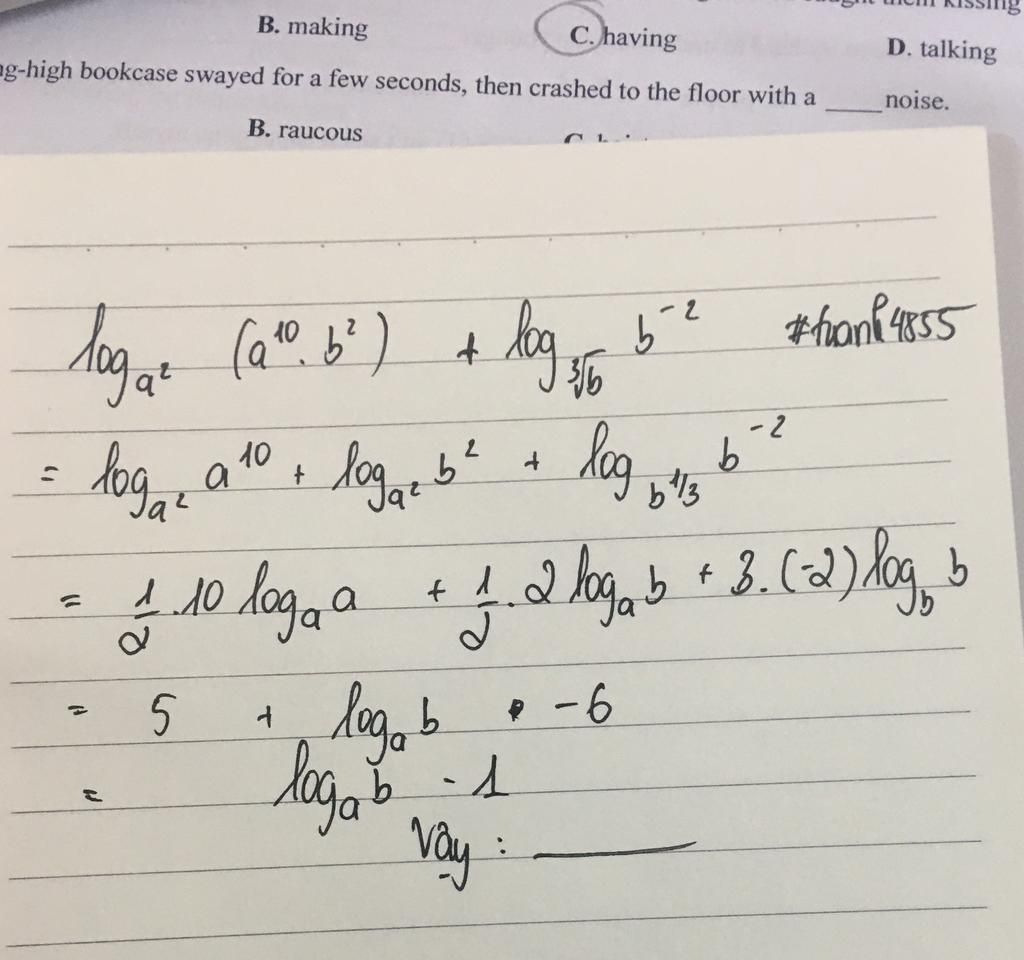 them kissing
B. making C. having D. talking
g-high bookcase swayed for a few seconds, then crashed to the floor with a ____ noise.
B. raucous
log_{a^2} (a^{10} . b^2) + log_{∛b} b^{-2}
= log_{a^2} a^{10} + log_{a^2} b^2 + log_{b^{1/3}} b^{-2}
= 1/2 . 10 log_a a + 1/2 . 2 log_a b + 3 . (-2) log_b b
= 5 + log_a b - 6
= log_a b - 1
Vậy : ____